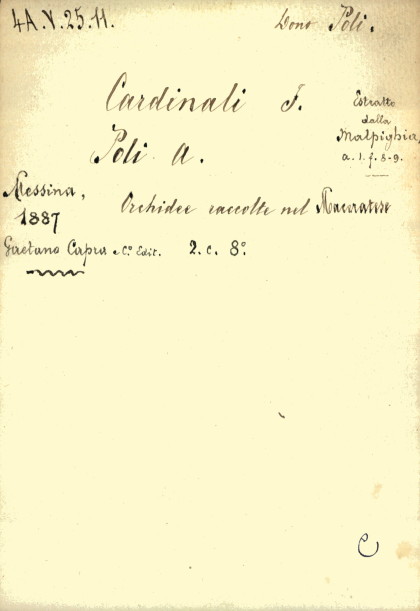 4A.V.25.11.
Dono Poli.
Cardinali F.
Estratto
dalla
Malpighia,
a. 1. f. 8-9.
Poli A.
Messina,
1887
Orchidee raccolte nel Maceratese
Gaetano Capra e C.º Edit. 2. c. 8º.
C